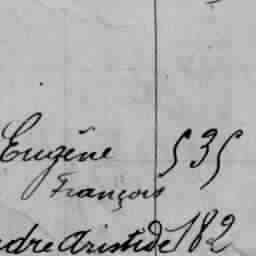 Eugène 535
François
dre Aristide 182